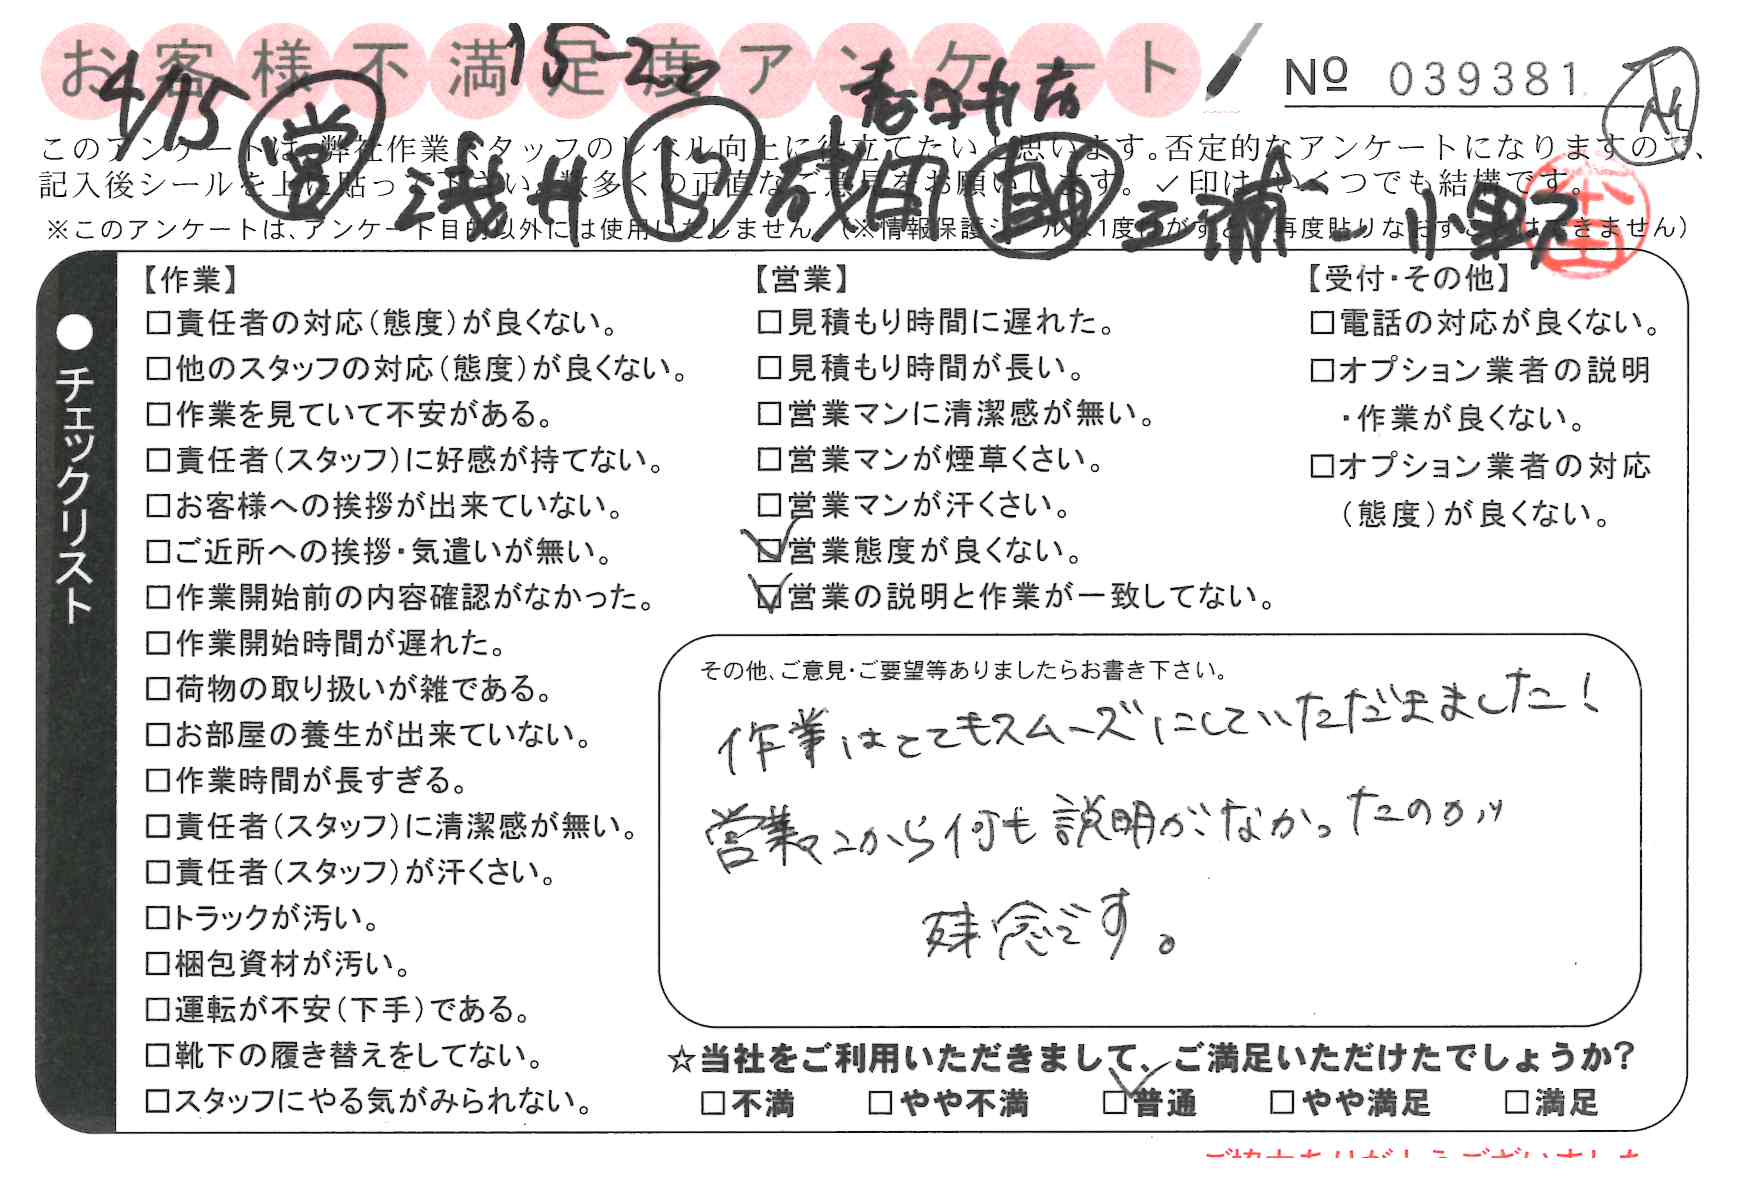 お客様不満足度アンケート
Nº 039381
4/15 営 浅井 15-20
このアンケートは、弊社作業スタッフのレベル向上に役立てたいと思います。否定的なアンケートになりますので、
記入後シールを上に貼って下さい。数多くの正直なご意見をお願いします。✓印は、いくつでも結構です。
※このアンケートは、アンケート目的以外には使用いたしません。(※情報保護シールは1度はがすと、再度貼りなおすことはできません)
三浦 小野
●チェックリスト
【作業】
□責任者の対応(態度)が良くない。
□他のスタッフの対応(態度)が良くない。
□作業を見ていて不安がある。
□責任者(スタッフ)に好感が持てない。
□お客様への挨拶が出来ていない。
□ご近所への挨拶・気遣いが無い。
□作業開始前の内容確認がなかった。
□作業開始時間が遅れた。
□荷物の取り扱いが雑である。
□お部屋の養生が出来ていない。
□作業時間が長すぎる。
□責任者(スタッフ)に清潔感が無い。
□責任者(スタッフ)が汗くさい。
□トラックが汚い。
□梱包資材が汚い。
□運転が不安(下手)である。
□靴下の履き替えをしてない。
□スタッフにやる気がみられない。
【営業】
□見積もり時間に遅れた。
□見積もり時間が長い。
□営業マンに清潔感が無い。
□営業マンが煙草くさい。
□営業マンが汗くさい。
☑営業態度が良くない。
☑営業の説明と作業が一致してない。
【受付・その他】
□電話の対応が良くない。
□オプション業者の説明
・作業が良くない。
□オプション業者の対応
(態度)が良くない。
その他、ご意見・ご要望等ありましたらお書き下さい。
作業はとてもスムーズにしていただきました!
営業マンから何も説明がなかったのが
残念です。
☆当社をご利用いただきまして、ご満足いただけたでしょうか?
□不満 □やや不満 ☑普通 □やや満足 □満足
ご協力ありがとうございました